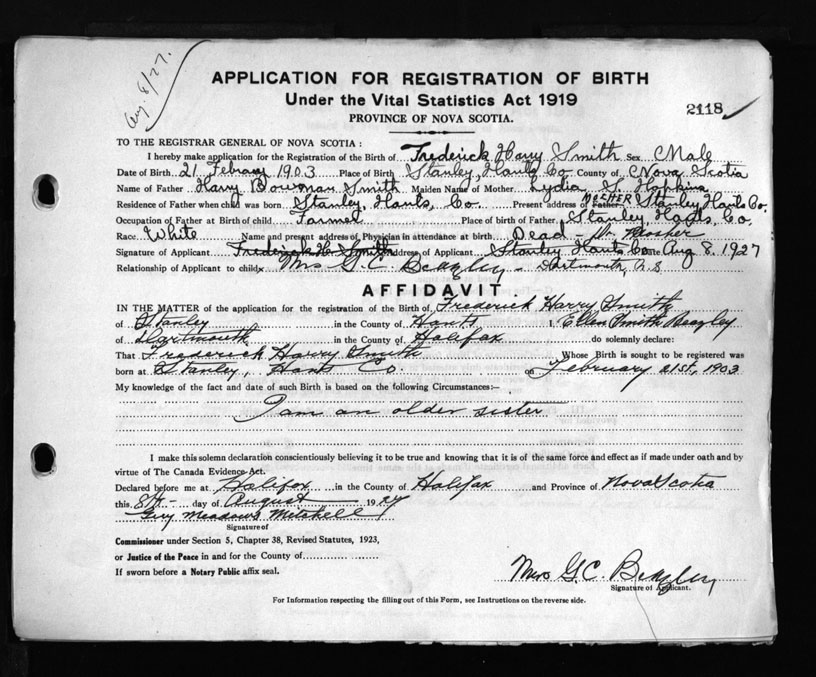 Aug. 8/27.
APPLICATION FOR REGISTRATION OF BIRTH
Under the Vital Statistics Act 1919
2118
PROVINCE OF NOVA SCOTIA.
TO THE REGISTRAR GENERAL OF NOVA SCOTIA:
I hereby make application for the Registration of the Birth of Frederick Harry Smith Sex Male
Date of Birth 21 February 1903 Place of Birth Stanley, Hants Co County of Nova Scotia
Name of Father Harry Bowman Smith Maiden Name of Mother Lydia S. Hopkins
Residence of Father when child was born Stanley, Hants, Co. Present address of Father MOTHER Stanley Hants Co.
Occupation of Father at Birth of child Farmer Place of birth of Father Stanley, Hants, Co.
Race White Name and present address of Physician in attendance at birth Dead - Dr.
Signature of Applicant Frederick H. Smith Address of Applicant Stanley Hants Co Date Aug 8. 1927
Relationship of Applicant to child Mrs G. C. Beazley - Dartmouth, N.S
AFFIDAVIT
IN THE MATTER of the application for the registration of the Birth of Frederick Harry Smith
of Stanley in the County of Hants I, Ellen Smith Beazley
of Dartmouth in the County of Halifax do solemnly declare:
That Frederick Harry Smith Whose Birth is sought to be registered was
born at Stanley, Hants Co. on February 21st, 1903
My knowledge of the fact and date of such Birth is based on the following Circumstances:—
I am an older sister
I make this solemn declaration conscientiously believing it to be true and knowing that it is of the same force and effect as if made under oath and by
virtue of The Canada Evidence Act.
Declared before me at Halifax in the County of Halifax and Province of Nova Scotia
this 8th day of August 1927
Guy Meadows Mitchell
Signature of
Commissioner under Section 5, Chapter 38, Revised Statutes, 1923,
or Justice of the Peace in and for the County of
If sworn before a Notary Public affix seal.
Mrs G. C. Beazley
Signature of Applicant.
For Information respecting the filling out of this Form, see Instructions on the reverse side.